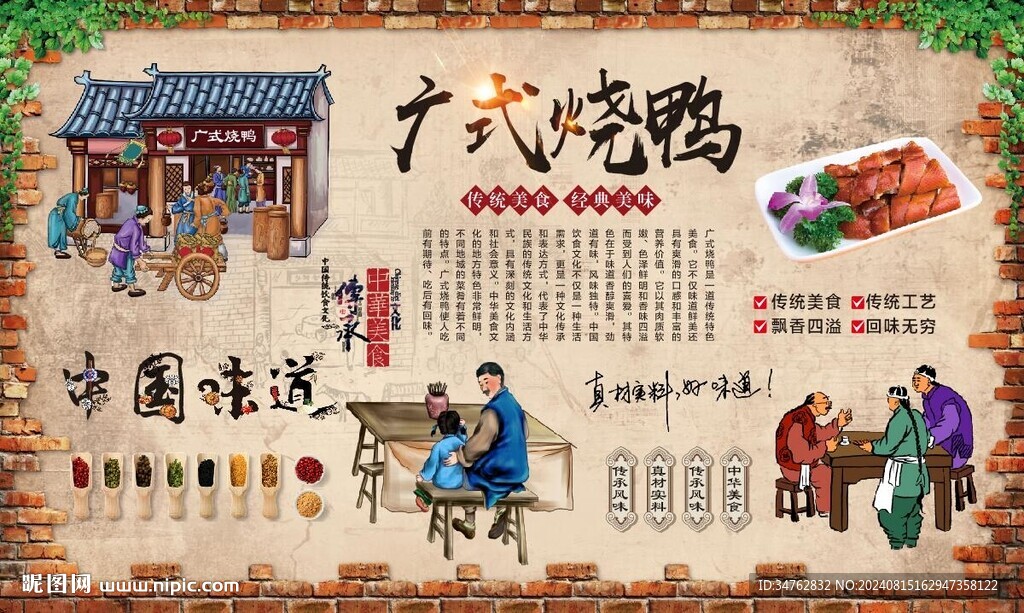 广式烧鸭
广式烧鸭
传统美食 经典美味
广式烧鸭是一道传统特色
美食，它不仅味道鲜美还
具有爽滑的口感和丰富的
营养价值。它以其肉质软
嫩、色泽鲜明和香味四溢
而受到人们的喜爱。其特
色在于味道香醇爽滑，劲
道有味，风味独特。中国
饮食文化不仅是一种生活
需求，更是一种文化传承
和表达方式，代表了中华
民族的传统文化和生活方
式，具有深刻的文化内涵
和社会意义。中华美食文
化的地方特色非常鲜明，
不同地域的菜肴有着不同
的特点。广式烧鸭使人吃
前有期待、吃后有回味。
中華美食
文化
傳承
中国传统饮食文化
传统美食 传统工艺
飘香四溢 回味无穷
中国味道
真材实料,好味道!
传承风味
真材实料
传承风味
中华美食
昵图网 www.nipic.com
ID:34762832 NO:20240815162947358122